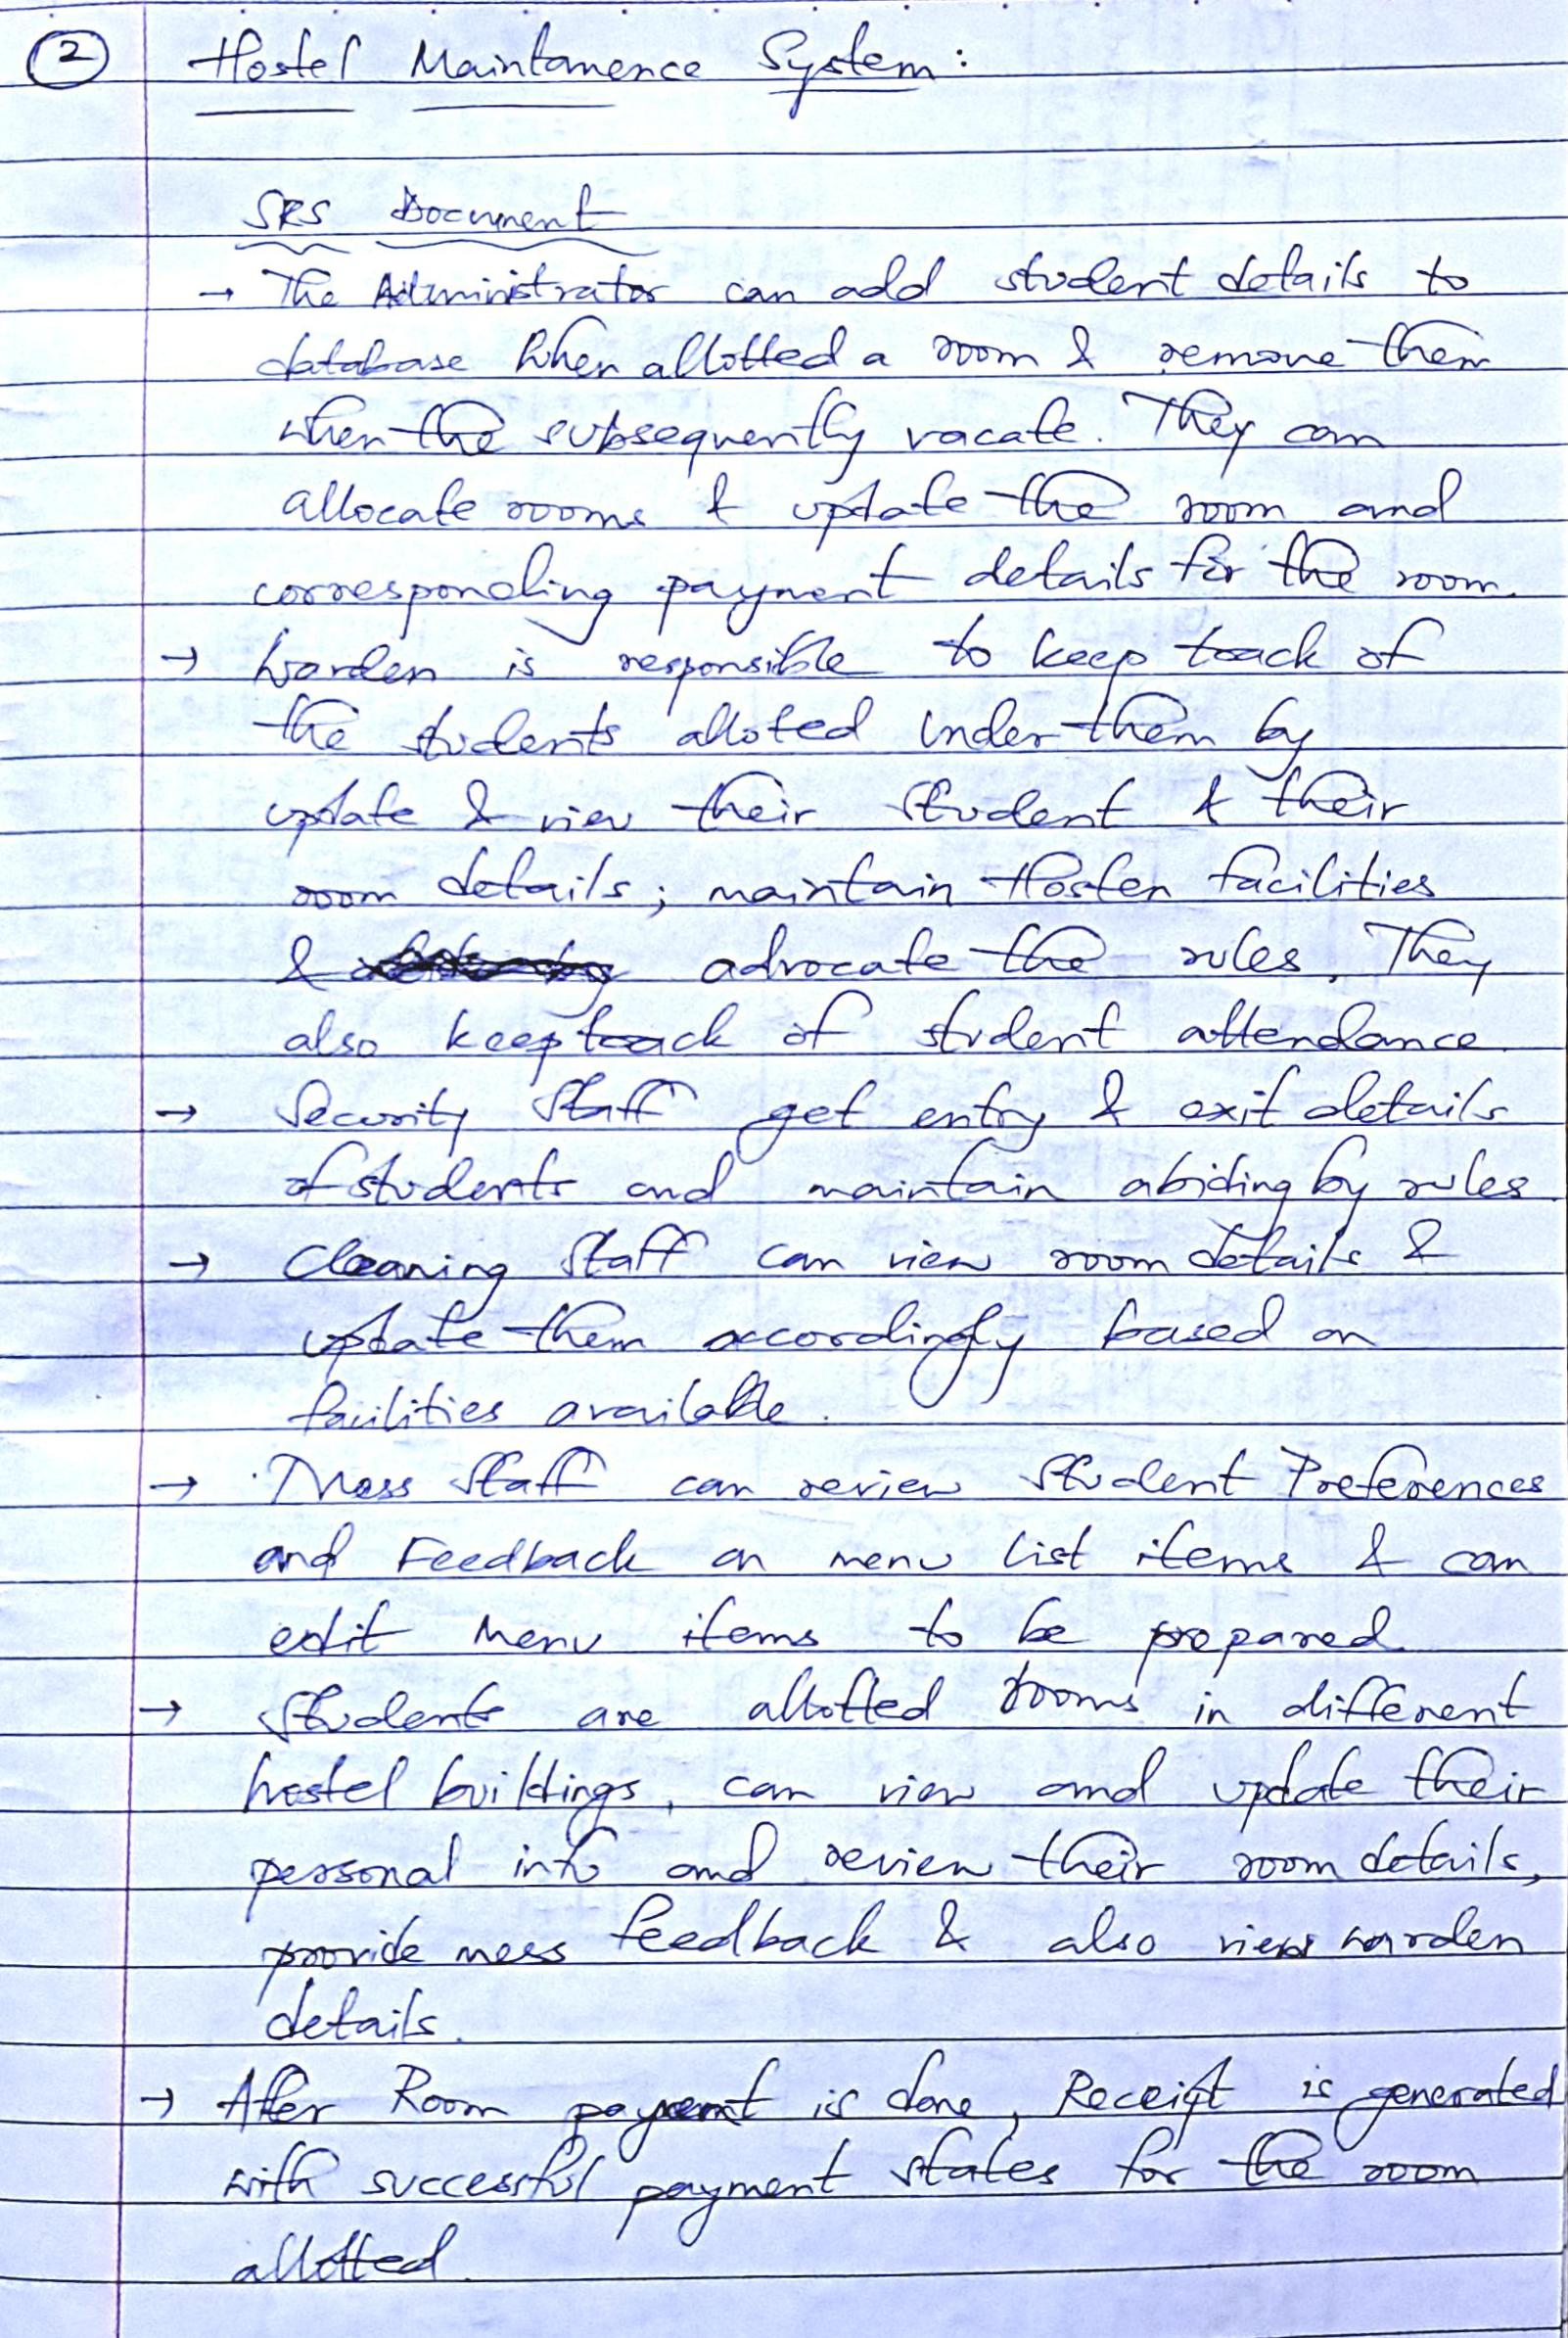 2 Hostel Maintanence System:
SRS Document
→ The Administrator can add student details to
database when allotted a room & remove them
when the subsequently vacate. They can
allocate rooms & update the room and
corresponding payment details for the room.
→ Warden is responsible to keep track of
the students alloted under them by
update & view their student & their
room details; maintain Hostel facilities
& advocate the rules. They
also keep track of student attendance
→ Security Staff get entry & exit details
of students and maintain abiding by rules.
→ Cleaning Staff can view room details &
update them accordingly based on
facilities available.
→ Mess Staff can review Student Preferences
and Feedback on menu list items & can
edit menu items to be prepared
→ Students are allotted rooms in different
hostel buildings, can view and update their
personal info and review their room details,
provide mess feedback & also view warden
details.
→ After Room payment is done, Receipt is generated
with successful payment states for the room
allotted.